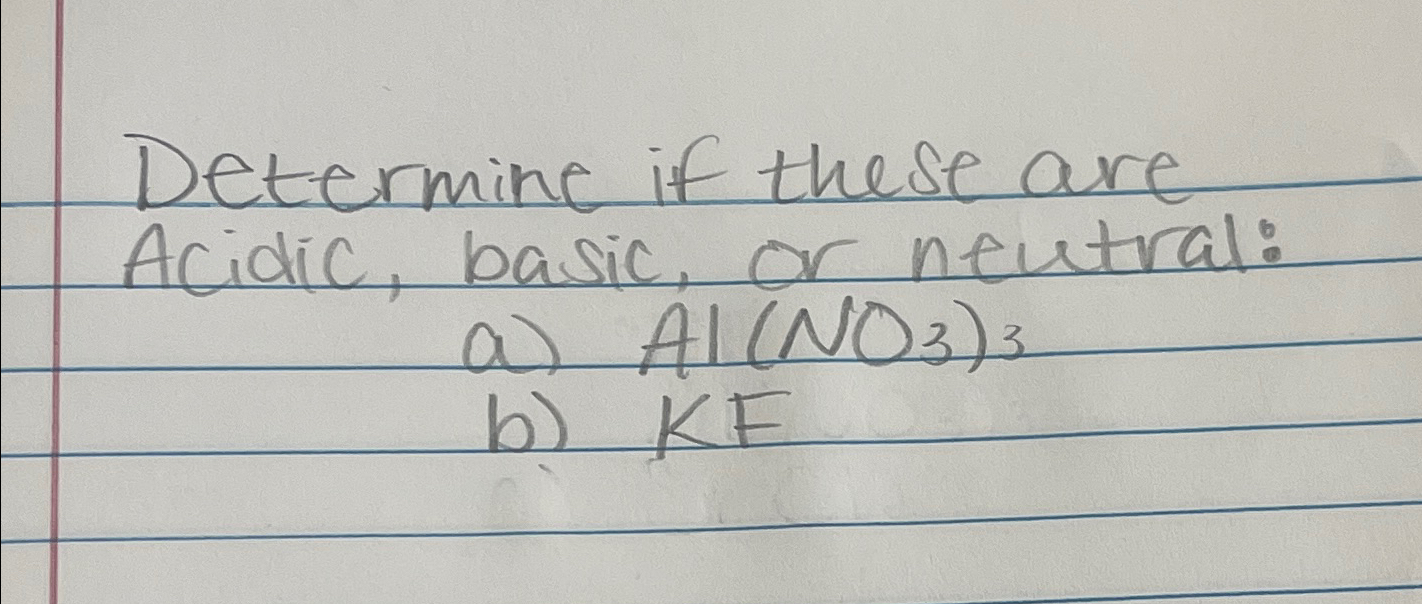 Determine if these are
Acidic, basic, or neutral:
a) Al(NO3)3
b) KF